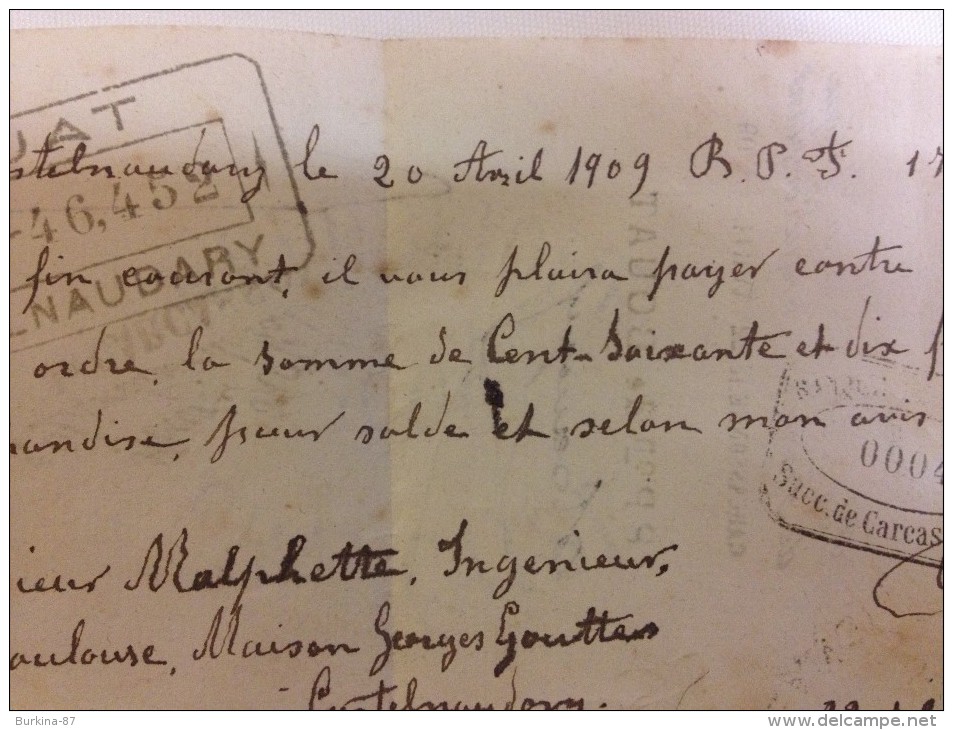 UAT
stelnaudary le 20 Avril 1909 B.P.F. 17
46,452
fin courant, il vous plaira payer contre
LNAUDARY
ordre, la somme de Cent-Soixante et dix f
andise, pour solde et selon mon avis
0004
Succ. de Carcas
ieur Malphette, Ingenieur,
oulouse, Maison Georges Gouttes
Castelnaudary.
Burkina-87
www.delcampe.net